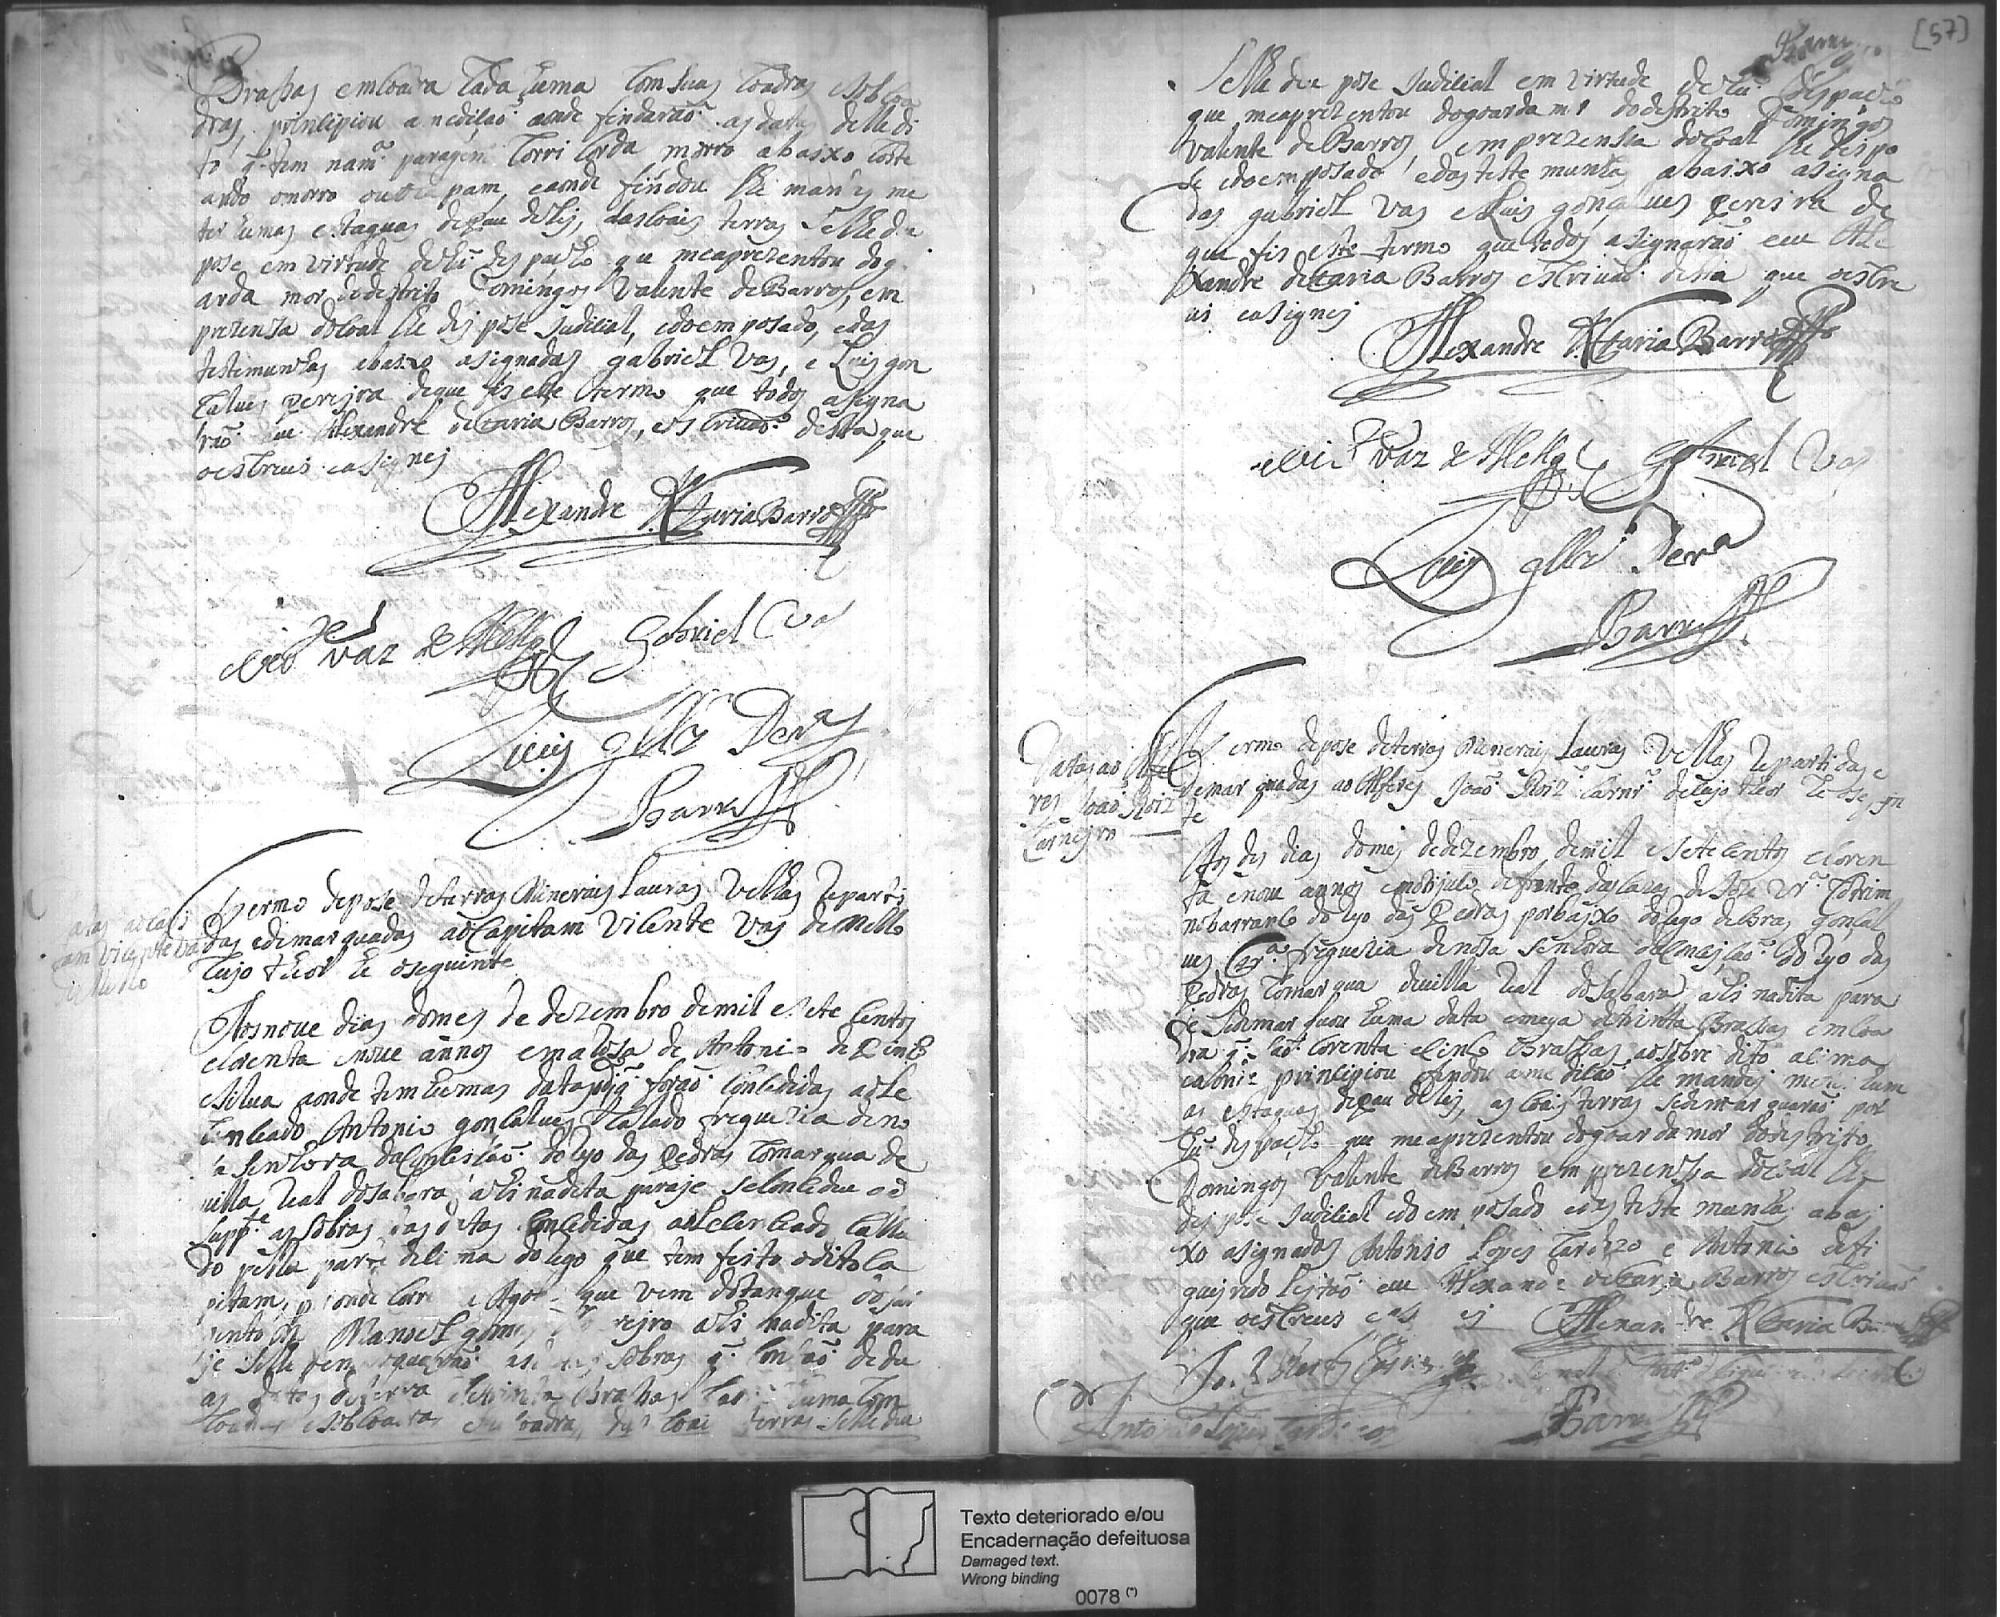 Brassas em coadra Cada huma Com suas Coadras e Sob coa
dras, prinCipiou a mediCaõ aonde findaraõ as datas delle di
to q. tem na m.ª paragem Corri Corda morro abaixo Coste
ando o morro outo pam, e aonde findou lhe mandey me
ter humas estaquas de pau de Ley, das Coais terras Se lhe deu
pose em virtude de hũ despacho que me aprezentou do g
arda mor do destrito Domingos Valente de Barros, em
prezensa do Coal lhe dey pose Judicial, e do emposado, e das
testimunhas abaixo asignadas gabriel Vas, e Luis gon
Calves pereyra de que fis este termo que todos asigna
raõ eu Alexandre de Faria Barros, esCrivaõ desta que
o esCrevy e asigney
Alexandre de Faria Barros
Vic.te Vaz de Mello Gabriel Vas
Luis gllz Per.ª
Barros
Datas ao Capi
tam Vicente Vas
de Mello
Termo de pose de terras Mineraes Lauras Velhas Reparti
das e demarquadas ao Capitam ViCente Vas de Mello
Cujo theor he o seguinte
Aos nove dias do mes de dezembro de mil e sete Centos
e Corenta e nove annos em a Casa de Antonio de
e Silva aonde tem humas datas q. foraõ ConCedidas ao Le
CenCeado Antonio gonCalves Calado freguezia de no
sa Senhora da ConCeisaõ do Ryo das Pedras Comarqua de
villa Real do Sabara, a hi na dita parage Se ConCedeu ao
Supp.te as Sobras das ditas ConCedidas ao LeCenCeado Calla
do pella parte de Cima do Rego que tem feito o dito Ca
pitam, por onde Corre a Agoa que vem do tanque
junto de Manoel gomes a hi na dita para
je Se lhe demarquaraõ as ditas Sobras q. Constaõ de du
as datas de terra de trinta Brassas Cada huma Com
Coadras e Sob Coadras em Coadra, das Coais terras Se lhe deu
[57]
Barros
Se lhe deu pose Judicial em virtude de hũ despacho
que me aprezentou do goarda mr do destrito Domingos
Valente de Barros, em prezensa do Coal lhe dey po
se e do emposado e das testemunhas abaixo asigna
das gabriel Vas e Luis gonçalves Pereira de
que fis este termo que todos asignaraõ eu Ale
xandre de Faria Barros esCrivaõ desta que o esCre
vi e asigney
Alexandre de Faria Barros
Vic.te Vaz de Mello Gabriel Vas
Luis gllz Per.ª
Barros
Datas ao Alfe
res Joaõ Roiz
Carneyro
Termo de pose de terras Mineraes Lauras Velhas Repartidas e
demarquadas ao Alferes Joaõ Roiz Carnr.º de Cujo theor he o seguin
te
Aos des dias do mes de dezembro de mil e sete Centos e Coren
ta e nove annos defronte das Cazas de
no barranCo do Ryo das Pedras por baixo do Rego de Bras gonçal
ves freguezia de nosa Senhora da ConCeiçaõ do Ryo das
Pedras Comarqua de villa Real do Sabara, a hi na dita para
je Se demarquou huma data e meya de trinta Brassas em Coa
dra q. saõ Corenta e CinCo Brassas ao sobre dito aCima
e aonde prinCipiou e findou a mediCaõ lhe mandey meter hum
as estaquas de pau de Ley, as Coais terras Se demarquaraõ por
hũ despacho que me aprezentou do goarda mor do destrito
Domingos Valente de Barros em prezensa do Coal lhe
dey pose Judicial e do emposado e das testemunhas abai
xo asignadas Antonio Lopes Cardozo e Antonio de fi
gueiredo Leytaõ eu Alexandre de Faria Barros esCrivaõ
que o esCrevy e asigney Alexandre de Faria Barros
Antonio Lopes Cardozo
Barros
Texto deteriorado e/ou
Encadernação defeituosa
Damaged text.
Wrong binding
0078 (*)